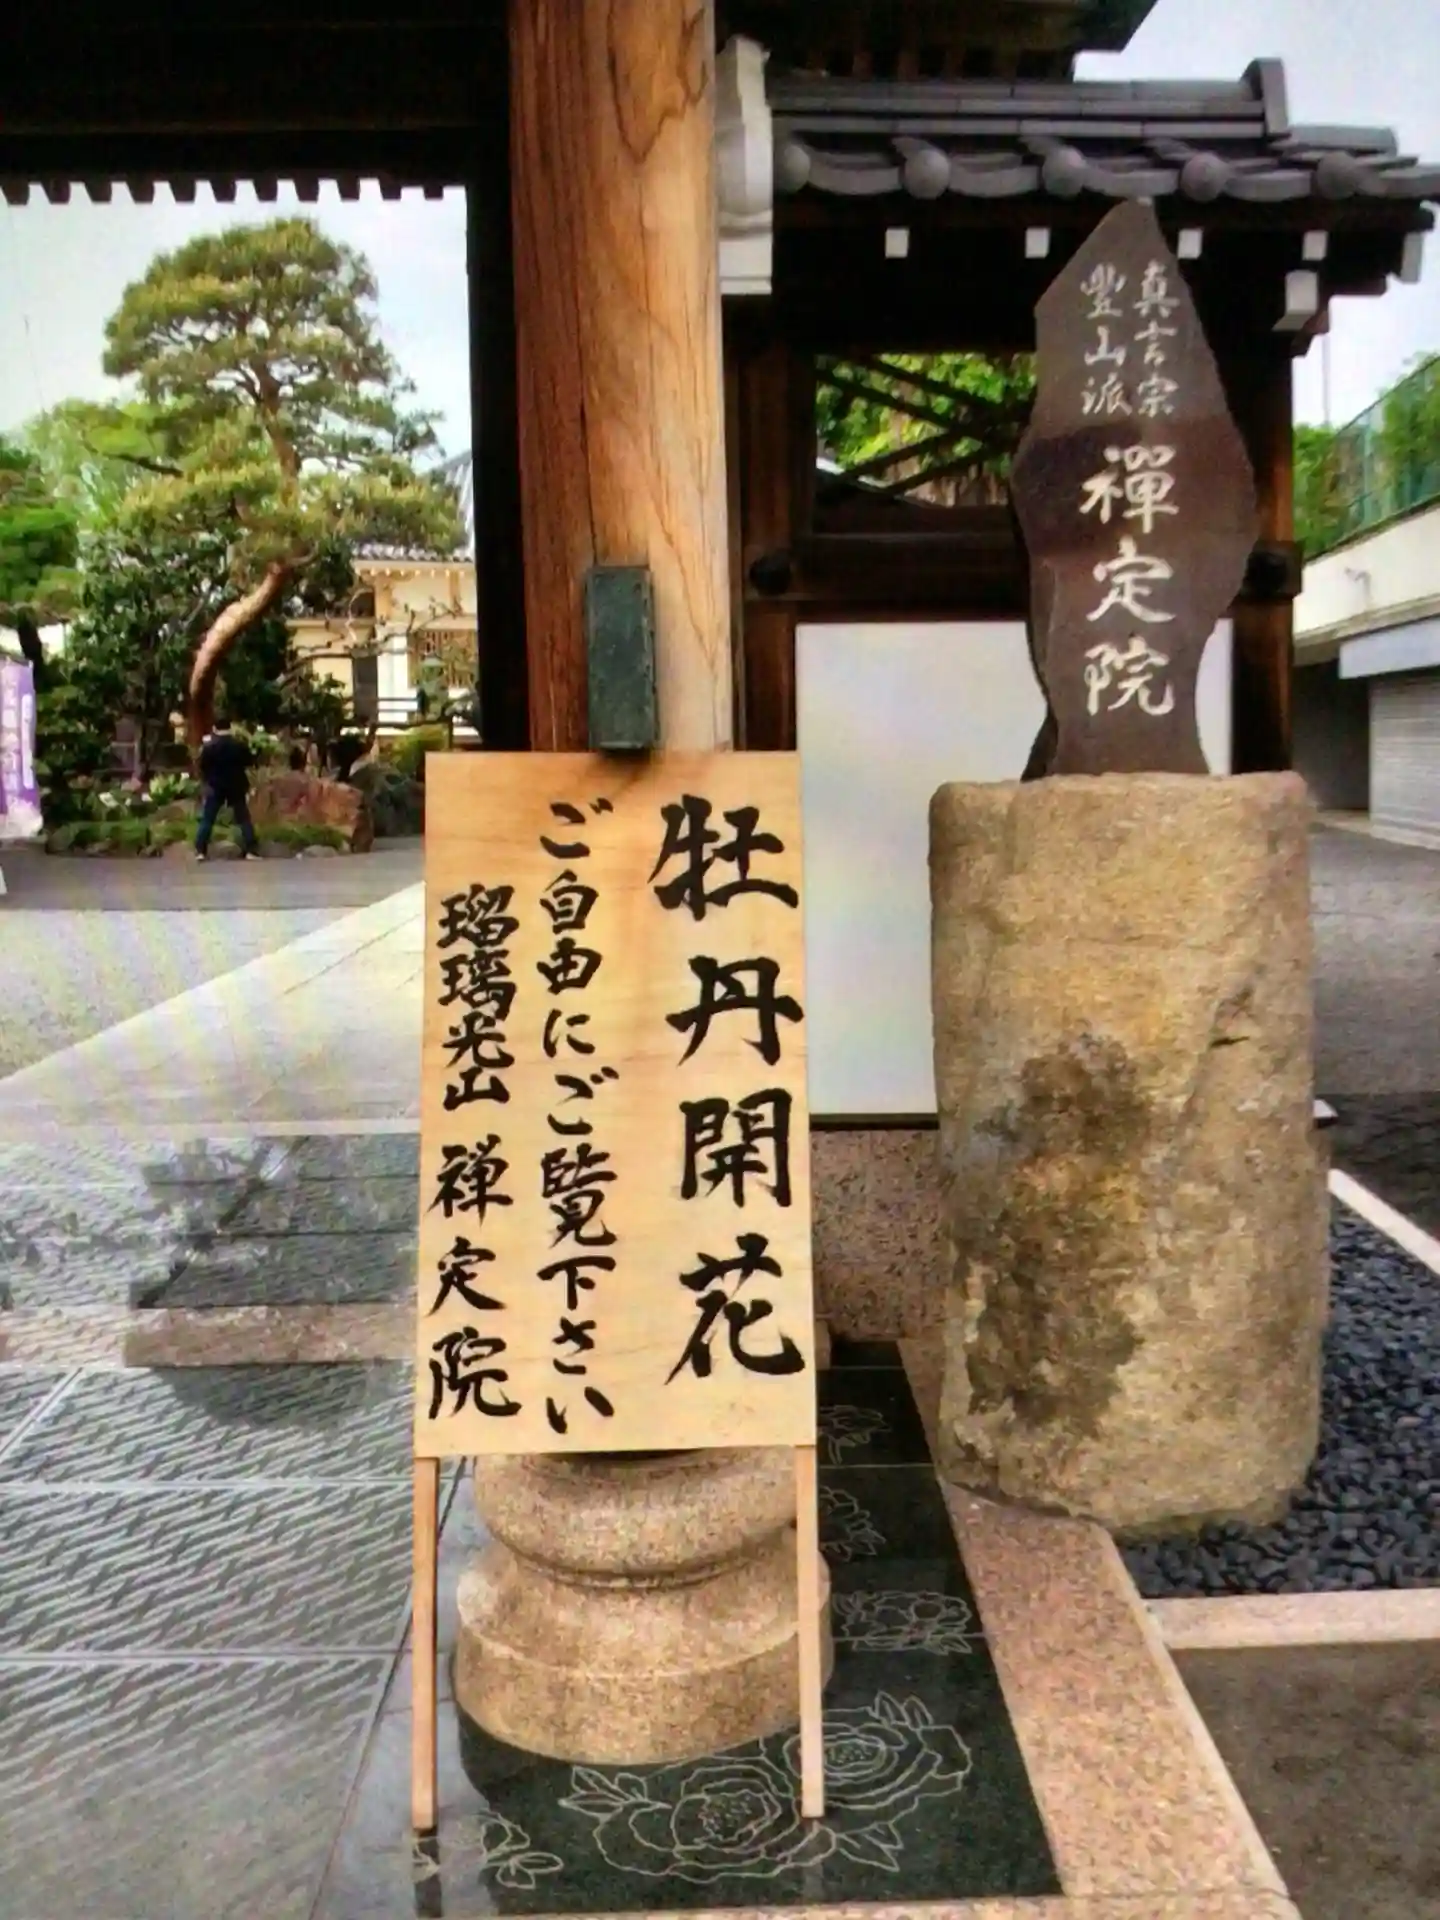 真言宗
豊山派
禪定院
牡丹開花
ご自由にご覧下さい
瑠璃光山 禅定院